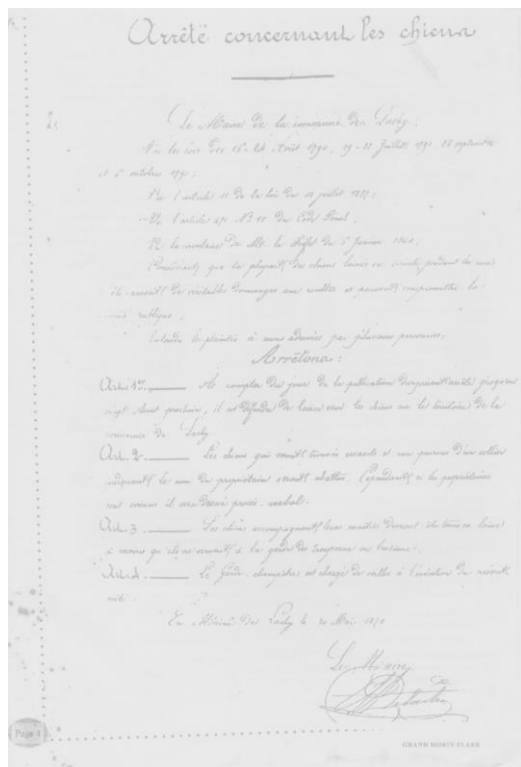 Arrêté concernant les chiens
2.
Le Maire de la commune de Lachy,
Vu les lois des 16-24 Août 1790, 19-22 Juillet 1791, 28 septembre
et 6 octobre 1791;
Vu l'article 11 de la loi du 18 juillet 1837;
Vu l'article 471 N° 15 du Code Pénal;
Vu la circulaire de Mr. le Préfet du 5 Janvier
Considérant que la plupart des chiens laissés en pendant la
de véritables dommages aux récoltes et peuvent compromettre la
publique;
les plaintes à nous adressées par plusieurs personnes,
Arrêtons:
Art. 1er. A compter du jour de la publication du présent arrêté jusqu'au
vingt Août prochain, il est défendu de laisser les chiens sur le territoire de la
commune de Lachy.
Art. 2. Les chiens qui seront trouvés errants et non pourvus d'un collier
indiquant le nom du propriétaire seront abattus. Cependant si les propriétaires
sont connus il sera dressé procès-verbal.
Art. 3. Les chiens accompagnant leurs maîtres devront être tenus en laisse
à moins qu'ils ne servent à la garde des troupeaux ou bestiaux.
Art. 4. Le Garde-champêtre est chargé de veiller à l'exécution du présent
arrêté.
En Mairie de Lachy le 20 Mai 1870
Le Maire,
Page 4
GRAND MORIN PLAGE